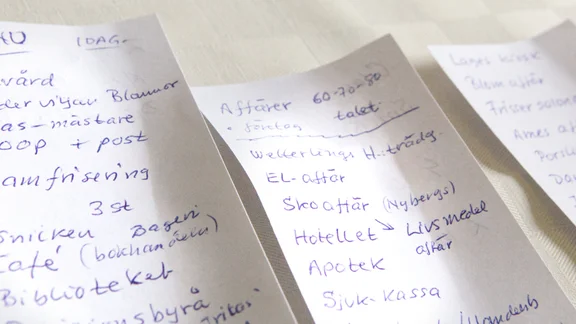 IDAG-
vård
Blommor
as-mästare
oop + post
amfrisering
3 st
Snickeri Bageri
Café (bokhandeln)
Bibliotekat
ingsbyrå
Affärer 60-70-80
• företag talet
Wetterlings H. trädg.
EL-affär
Skoaffär (Nybergs)
Hotellet Livsmedel
affär
Apotek
Sjuk-kassa
Lages kiosk
Blomaffär
Frisersalong
Ames a
Porsli